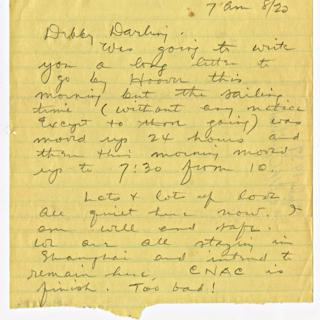 7 am 8/20
Debby Darling.
Was going to write
you a long letter to
go by Hoover this
morning but the sailing
time (without any notice
except to those going) was
moved up 24 hours and
then this morning moved
up to 7:30 from 10.
Lots & lots of love
All quiet here now. I
am well and safe.
We are all staying in
Shanghai and intend to
remain here. CNAC is
finish. Too bad!